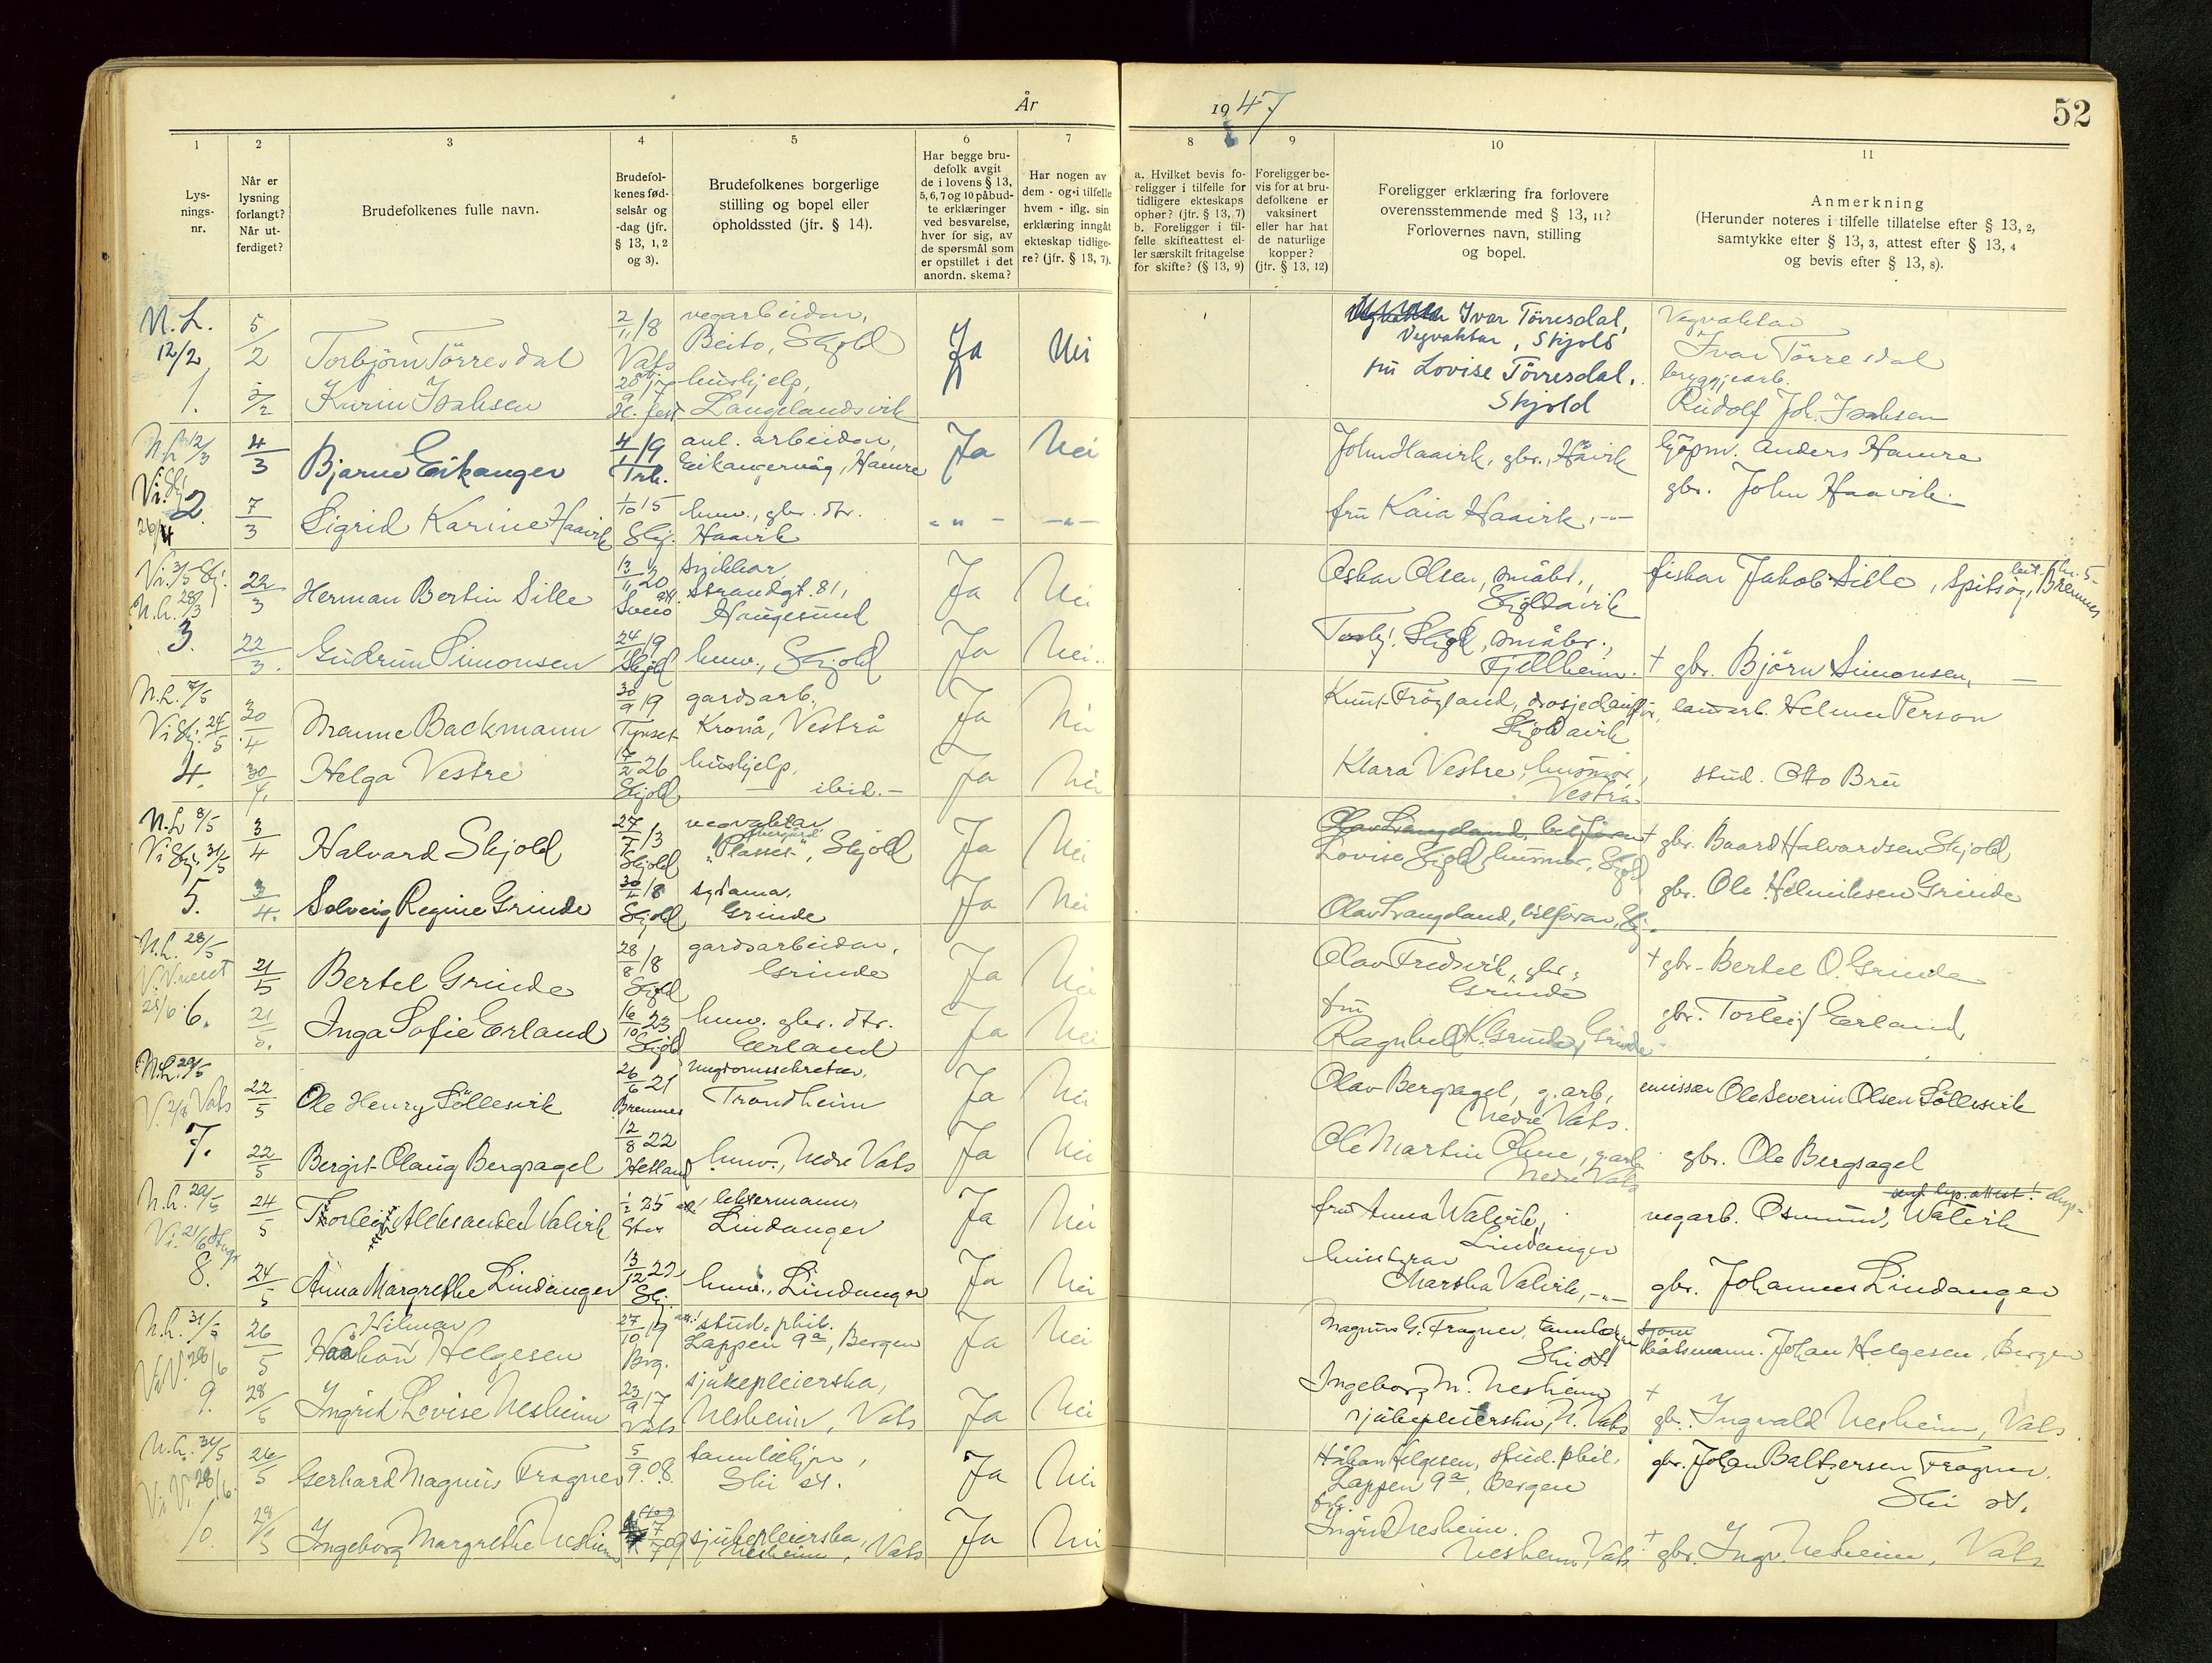 År 1947
52
1
2
3
4
5
6
7
8
9
10
11
Lys-
nings-
nr.
Når er
lysning
forlangt?
Når ut-
ferdiget?
Brudefolkenes fulle navn.
Brudefol-
kenes fød-
selsår og
-dag (jfr.
§ 13, 1, 2
og 3).
Brudefolkenes borgerlige
stilling og bopel eller
opholdssted (jfr. § 14).
Har begge bru-
defolk avgit
de i lovens § 13,
5, 6, 7 og 10 påbud-
te erklæringer
ved besvarelse,
hver for sig, av
de spørsmål som
er opstillet i det
anordn. skema?
Har nogen av
dem - og i tilfelle
hvem - iflg. sin
erklæring inngått
ekteskap tidlige-
re? (jfr. § 13, 7).
a. Hvilket bevis fo-
religger i tilfelle for
tidligere ekteskaps
ophør? (jfr. § 13, 7)
b. Foreligger i til-
felle skifteattest el-
ler særskilt fritagelse
for skifte? (§ 13, 9)
Foreligger be-
vis for at bru-
defolkene er
vaksinert
eller har hat
de naturlige
kopper?
(jfr. § 13, 12)
Foreligger erklæring fra forlovere
overensstemmende med § 13, 11?
Forlovernes navn, stilling
og bopel.
Anmerkning
(Herunder noteres i tilfelle tillatelse efter § 13, 2,
samtykke efter § 13, 3, attest efter § 13, 4
og bevis efter § 13, 8).
N.L. 12/2 5/2 Torbjörn Törresdal 2/11 18 Vats vegarbeidar, Beito, Skjold Ja Nei Ivar Törresdal, Vegvaktar, Skjold Vegvaktar Ivar Törresdal
1. 5/2 Karin Isaksen 20/9 17 hushjelp, Langelandsvik fru Lovise Törresdal, Skjold bryggjearb. Rudolf Joh. Isaksen
N.L. 12/3 4/3 Bjarne Eikanger 4/1 19 anl. arbeidar, Eikangervåg, Hamre Ja Nei John Haavik, gbr., Håvik kjöpm. Anders Hamre
2. 26/4 7/3 Sigrid Karine Haavik 1/10 15 Skj. huw., gbr. dtr. Haavik - " - - " - fru Kaia Haavik, - " - gbr. John Haavik.
Vi. 31/5 Skj. N.L. 28/3 22/3 Herman Bertin Sille 13/11 20 Sveio snikkar, Strandgt. 81, Haugesund Ja Nei Oskar Olsen, småbr., Skjoldavik fiskar Jakob Sille, Spitsöy, Bremnes
3. 22/3. Gudrun Simonsen 24/1 19 Skjold huw., Skjold Ja Nei. Torbj. Skjold, småbr., Fjellheim. † gbr. Björn Simonsen, —
N.L. 7/5 Vi Skj. 24/5 30/4 Manne Backmann 30/9 19 Tynset gardsarb., Kronå, Vestrå Ja Nei Knut Frögland, drosjeeigar, Skjoldavik lantarb. Helmer Person
4. 30/4. Helga Vestre 17/2 26 Skjold hushjelp, — ibid. — Ja Nei Klara Vestre, husmor, Vestrå stud. Otto Bru
N.L. 8/5 Vi Skj. 31/5 3/4 Halvard Skjold 27/7 13 Skjold vegvaktar "Plasset", Skjold Ja Nei Olav Langeland, bilförar Lovise Skjold, husmor, Skjold † gbr. Baard Halvardsen Skjold
5. 3/4. Solveig Regine Grinde 30/4 18 Skjold sydama, Grinde Ja Nei Olav Langeland, bilförar, Skj. gbr. Ole Helmiksen Grinde
N.L. 28/5 21/5 Bertel Grinde 28/8 18 Skjold gardsarbeidar, Grinde Ja Nei Olav Fredsvik, gbr., Grinde † gbr. Bertel O. Grinde
28/6. 6. 21/5. Inga Sofie Erland 16/10 23 Skjold huw. gbr. dtr. Erland Ja Nei fru Ragnhild K. Grinde, Grinde gbr. Torleif Erland
N.L. 29/5 V. 2/8 Vats 22/5 Ole Henry Söllesvik 26/6 21 Bremnes ungdomssekretær, Trondheim Ja Nei Olav Bergsagel, g.arb., Nedre Vats. emissær Ole Severin Olsen Söllesvik
7. 22/5 Bergit Olaug Bergsagel 12/8 22 Hetland huw., Nedre Vats Ja Nei Ole Martin Ohme, g.arb. Nedre Vats gbr. Ole Bergsagel
N.L. 29/5 Vi. 21/6 24/5 Torleif Aleksander Valvik 25 lektermann, Lindanger Ja Nei fru Anna Valvik, Lindanger vegarb. Osmund Valvik
8. 24/5 Anna Margrethe Lindanger 13/12 22 Skj. huw., Lindanger Ja Nei Martha Valvik, - " - gbr. Johannes Lindanger
N.L. 31/5 Vi V. 28/6 26/5 Hilmar Haakon Helgesen 27/10 19 Brg. stud. phil. Lappen 9a, Bergen Ja Nei Magnus G. Fragner, tannlækjar Ski st. båtsmann. Johan Helgesen, Bergen
9. 28/5 Ingrid Lovise Nesheim 23/9 17 Vats sjukepleierska, Nesheim, Vats Ja Nei Ingeborg M. Nesheim sjukepleierska, N. Vats † gbr. Ingvald Nesheim, Vats
N.L. 31/5 Vi V. 28/6. 26/5 Gerhard Magnus Fragner 5/9 08. tannlækjar, Ski st. Ja Nei Håkon Helgesen, stud. phil., Lappen 9a, Bergen gbr. Johan Baltzersen Fragner, Ski st.
10. 29/5 Ingeborg Margrethe Nesheim 7/7 09 sjukepleierska, Nesheim, Vats Ja Nei frk. Ingrid Nesheim. Nesheim, Vats † gbr. Ingv. Nesheim, Vats